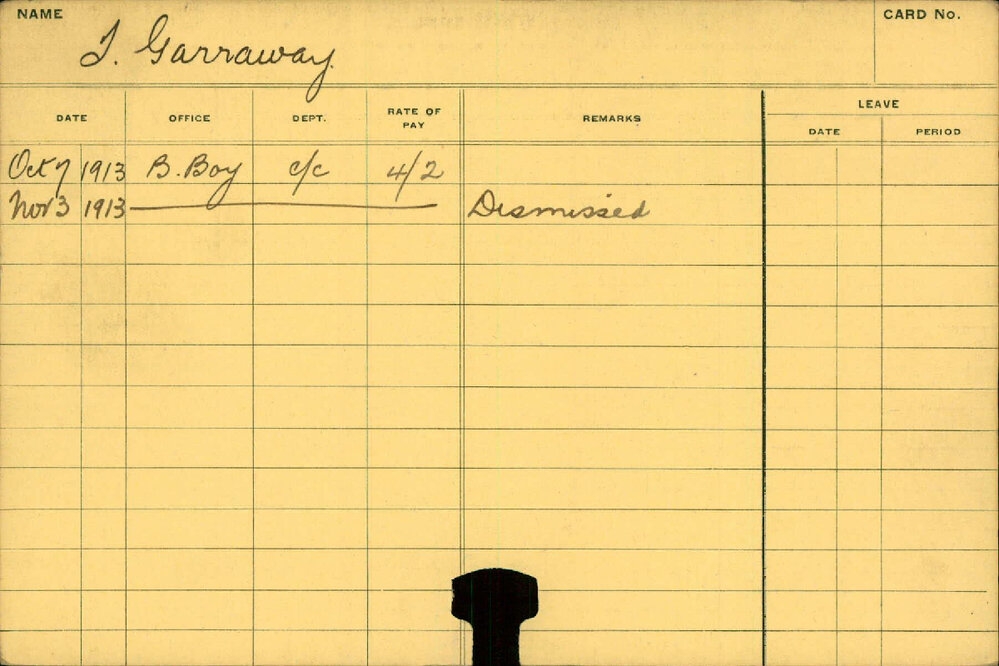 NAME
CARD No.
J. Garraway.
DATE OFFICE DEPT. RATE OF PAY REMARKS LEAVE
DATE PERIOD
Oct 7 1913 B. Boy c/c 4/2
Nov 3 1913 Dismissed